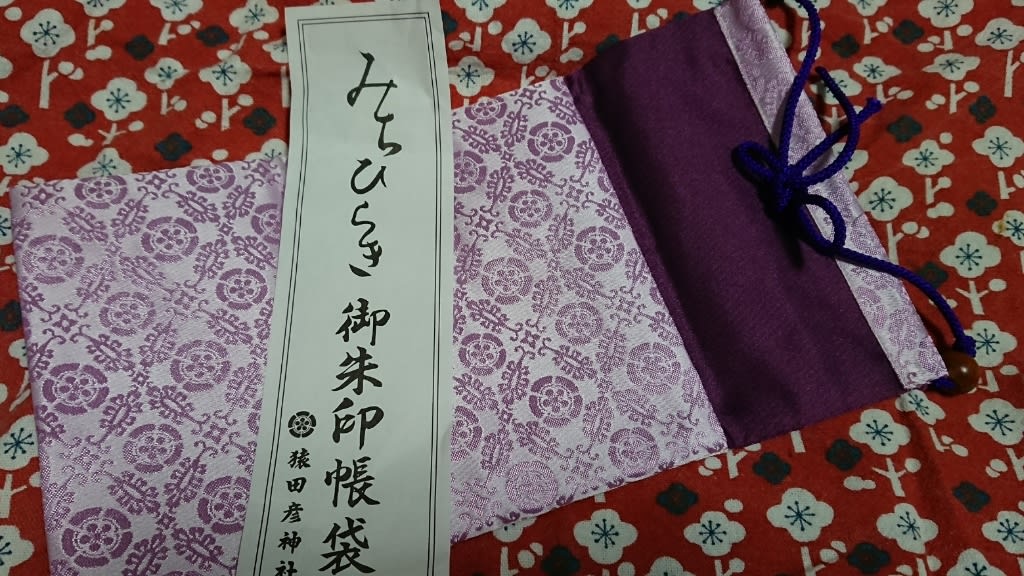 みちひらき 御朱印帳袋
猿田彦神社